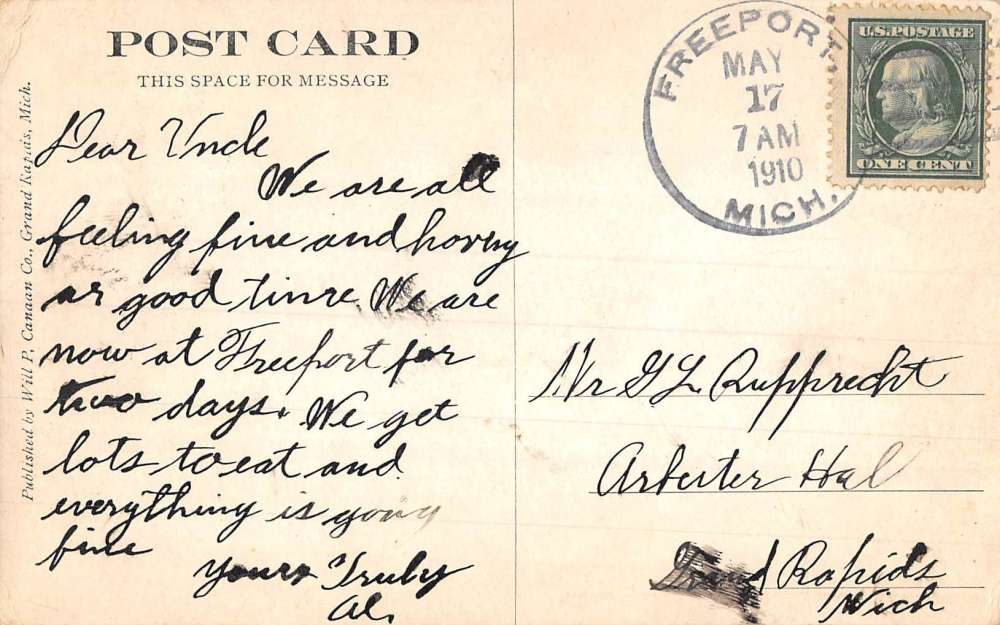 POST CARD
THIS SPACE FOR MESSAGE
Published by Will P. Canaan Co., Grand Rapids, Mich.
Dear Uncle
We are all
feeling fine and having
a good time. We are
now at Freeport for
two days. We get
lots to eat and
everything is going
fine
Yours Truly
Al.
FREEPORT,
MAY
17
7 AM
1910
MICH.
U.S. POSTAGE
ONE CENT
Mr G L Rupprecht
Arbeiter Hal
Grand Rapids
Mich